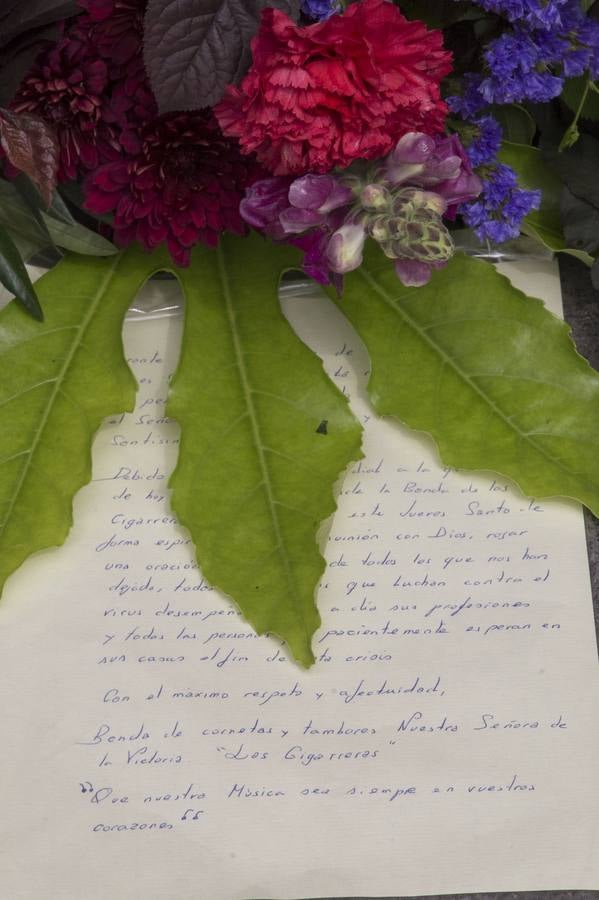 de
es
el Seño
Sentisim
Debido dial a la
de hoy de la Banda de las
Cigarrera este Jueves Santo de
forma espir unión con Dios, rezar
una oración de todos los que nos han
dejado, todos que luchan contra el
virus desempeñ a dia sus profesiones
y todas las personas pacientemente esperan en
sus casas el fin de ta crisis
Con el máximo respeto y afectuidad,
Banda de cornetas y tambores Nuestra Señora de
la Victoria. "Las Cigarreras"
"Que nuestra Música sea siempre en vuestros
corazones"